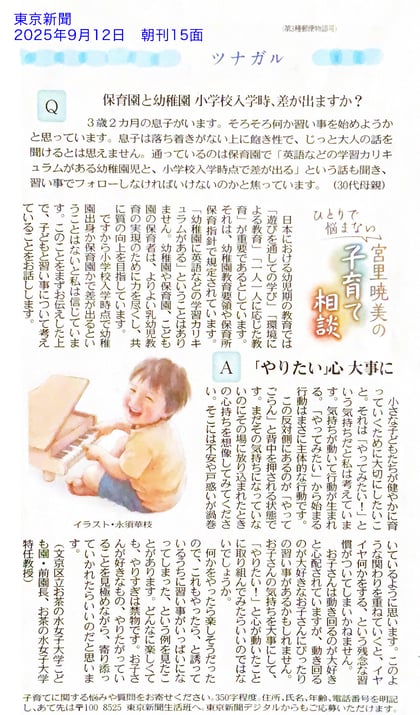 東京新聞
2025年9月12日　朝刊15面
(第3種郵便物認可)
ツナガル
Q
保育園と幼稚園 小学校入学時、差が出ますか？
3歳2カ月の息子がいます。そろそろ何か習い事を始めようか
と思っています。息子は落ち着きがない上に飽き性で、じっと大人の話を
聞けるとは思えません。通っているのは保育園で「英語などの学習カリキ
ュラムがある幼稚園児と、小学校入学時点で差が出る」という話も聞き、習
い事でフォローしなければいけないのかと焦っています。（30代母親）
ひとりで
悩まない
宮里暁美の
子育て
相談
日本における幼児期の教育では
「遊びを通しての学び」「環境に
よる教育」「一人一人に応じた教
育」が重要であるとしています。
「幼稚園教育要領や保育所
保育指針で規定されています。
「幼稚園に英語などの学習カリキ
ュラムがある」ということはあり
ません。幼稚園や保育園、こども
園の保育者は、よりよい乳幼児教
育の実現のために力を尽くし、共
に質の向上を目指しています。
ですから小学校入学時点で幼稚
園出身か保育園かで差が出るとい
うことはないと私は信じていま
す。このことをまずお伝えした上
で、子どもと習い事について考え
ていることをお話しします。
A
「やりたい」心 大事に
小さな子どもたちが健やかに育
っていくために大切にしたいこ
と。それは「やってみたい！」と
いう気持ちだと私は考えていま
す。気持ちが動いて行動が生まれ
る。「やってみたい」から始まる
行動はまさに主体的な行動です。
この反対側にあるのが「やって
ごらん」と背中を押される状態で
す。まだその気持ちになっていな
いのにその場に放り込まれたとき
の心持ちを想像してみてくださ
い。そこには不安や戸惑いが渦巻
いているように思います。このよ
うな関わりを重ねていくと、イヤ
イヤ何かをする、という残念な習
慣がついてしまいかねません。
お子さんは動き回るのが大好き
と心配されていますが、動き回る
のが大好きなお子さんにぴったり
の習い事があるかもしれません。
お子さんの気持ちを大事にして、
「やりたい！」と心が動いたこと
に取り組んでみたらいいのではな
いでしょうか。
何かをやったら楽しそうだった
ので、これもやったら、と誘って
いるうちに習い事がいっぱいにな
ってしまった、という例を見たこ
とがあります。どんなに楽しくて
も、やりすぎは禁物です。お子さ
んが好きなもの、やりたがってい
ることを見極めながら、寄り添っ
ていかれたらいいのだと思いま
す。
（文京区立お茶の水女子大学こど
も園・前園長、お茶の水女子大学
特任教授）
イラスト・永須華枝
子育てに関する悩みや質問をお寄せください。350字程度。住所、氏名、年齢、電話番号を明記
し、あて先は〒100 8525 東京新聞生活班へ。東京新聞デジタルからもご応募いただけます。